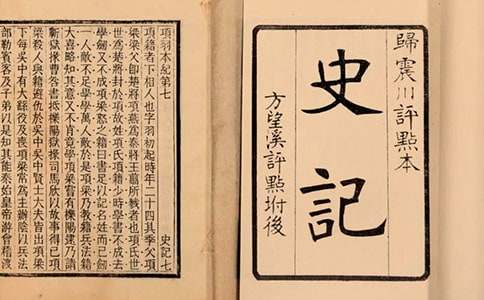 歸震川評點本
史記
方望溪評點坿後
史記七
項羽本紀第七
項籍者下相人也字羽初起時年二十四其季父項
梁梁父即楚將項燕為秦將王翦所戮者也項氏世
世為楚將封於項故姓項氏項籍少時學書不成去
學劍又不成項梁怒之籍曰書足以記名姓而已劍
一人敵不足學學萬人敵於是項梁乃教籍兵法籍
大喜略知其意又不肯竟學項梁嘗有櫟陽逮乃請
蘄獄掾曹咎書抵櫟陽獄掾司馬欣以故事得已項
梁殺人與籍避仇於吳中吳中賢士大夫皆出項梁
下每吳中有大繇役及喪項梁常為主辦陰以兵法
部勒賓客及子弟以是知其能秦始皇帝游會稽渡